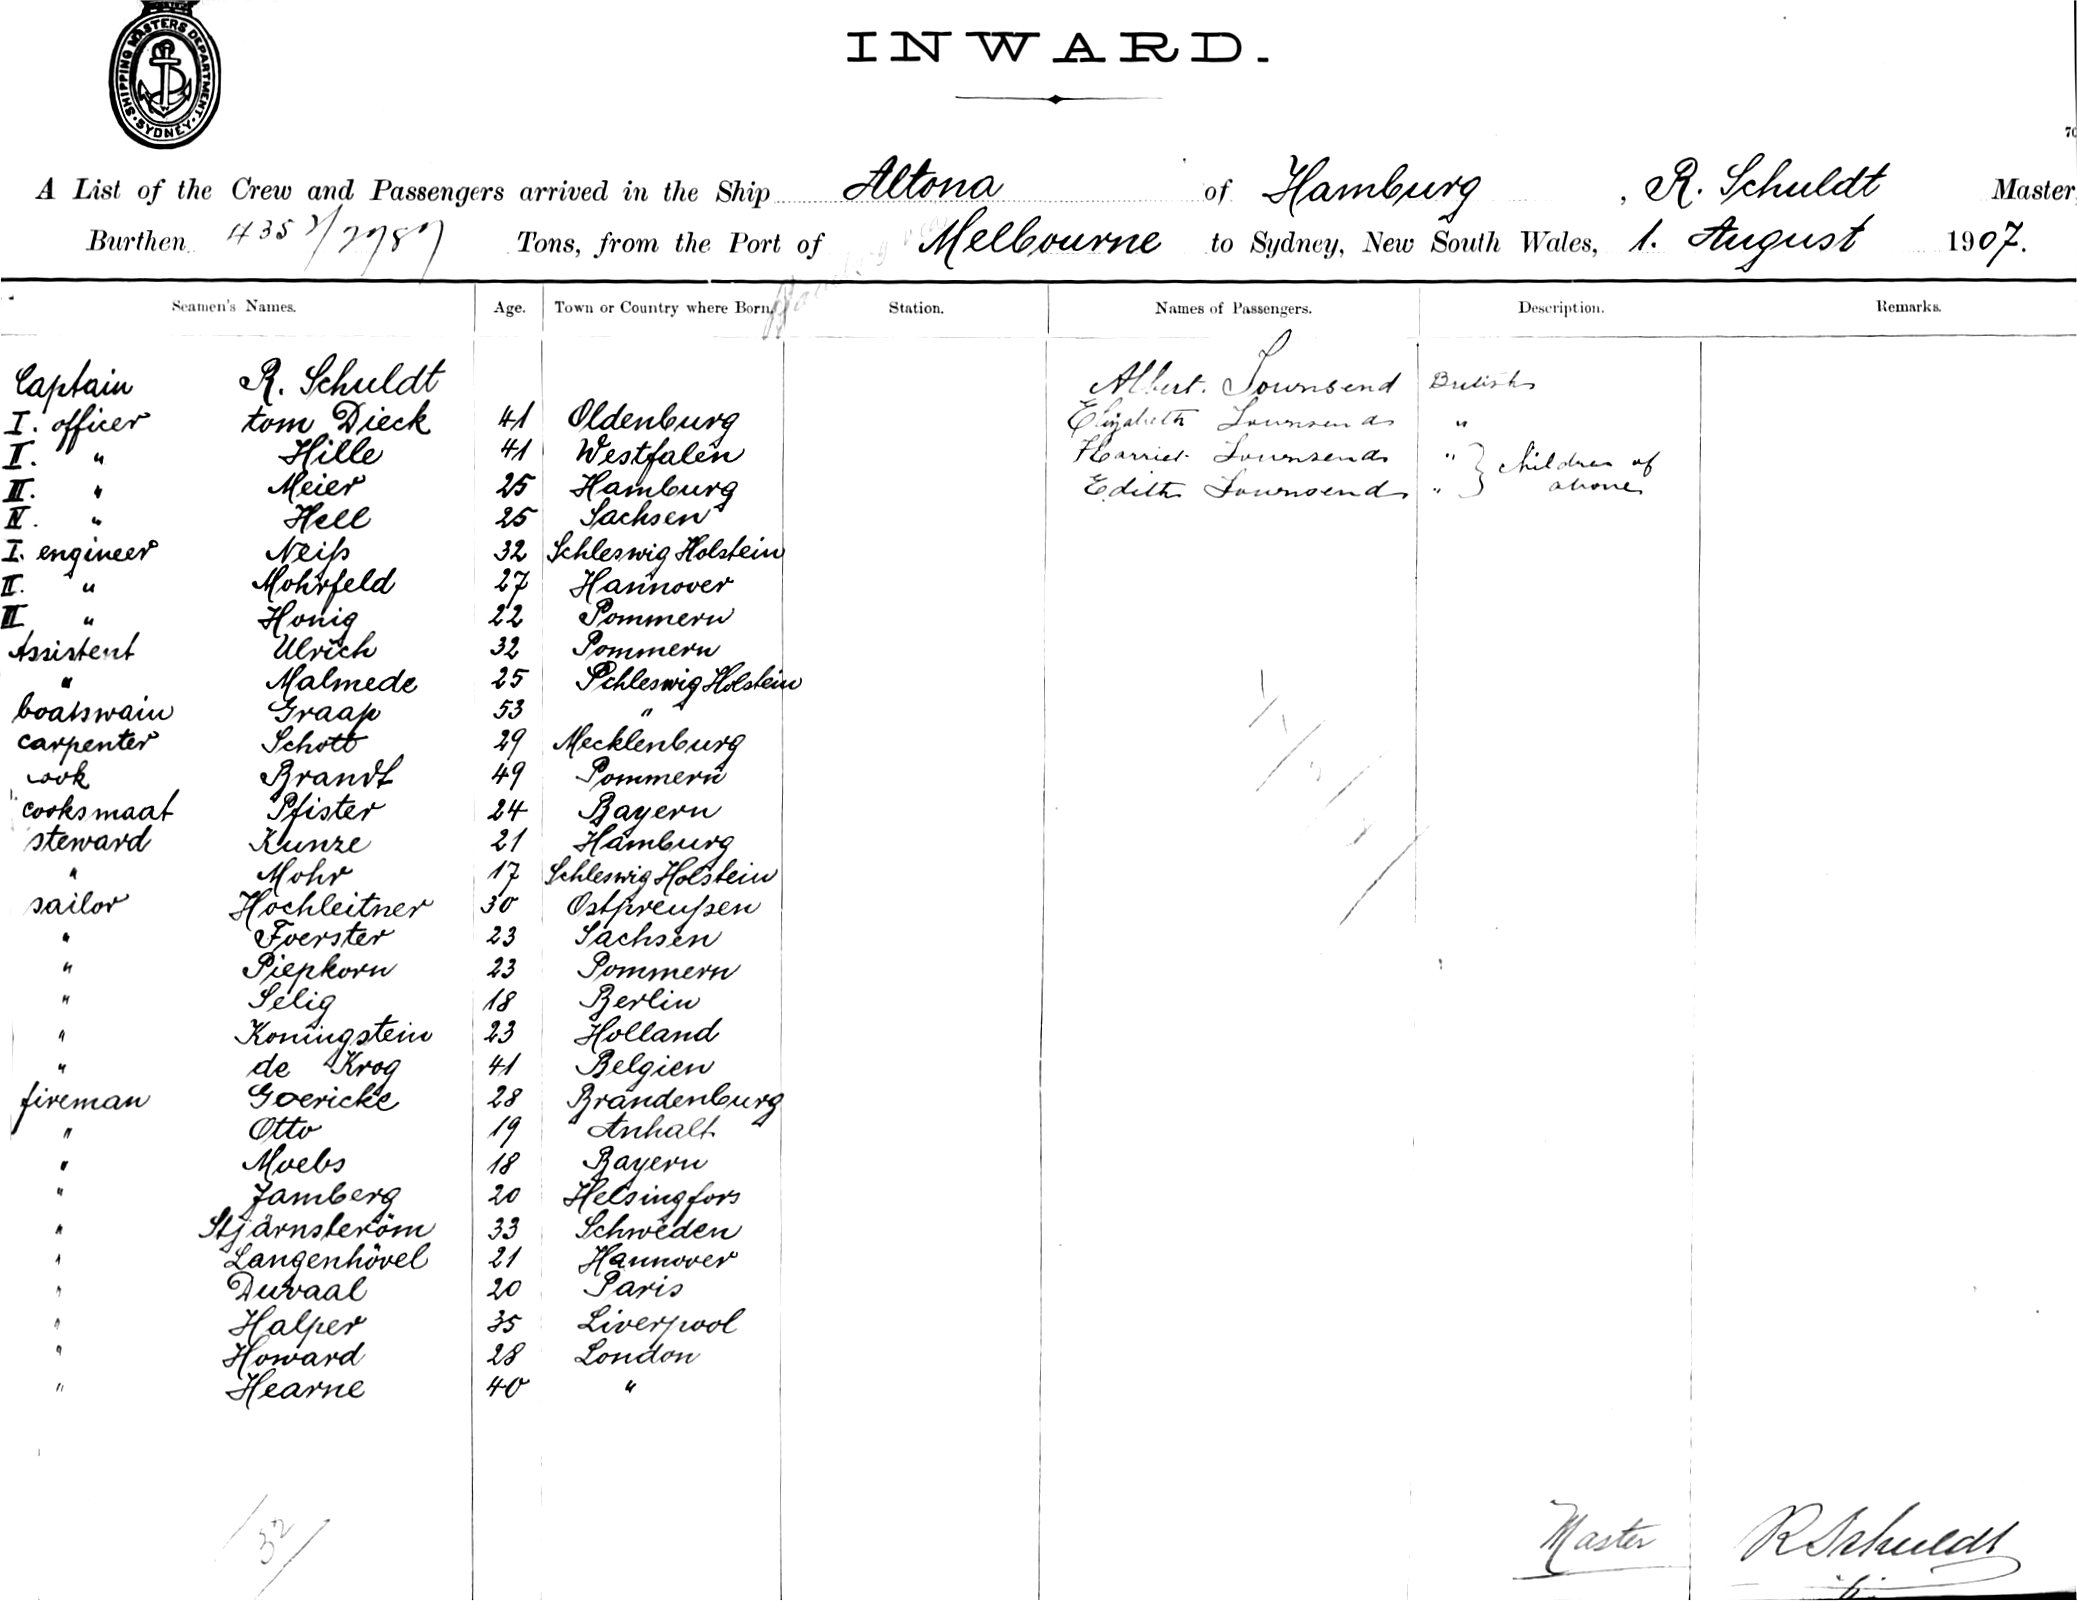 SHIPPING MASTERS DEPARTMENT · SYDNEY ·
INWARD.
70
A List of the Crew and Passengers arrived in the Ship Altona of Hamburg, R. Schuldt Master,
Burthen 4353/2787 Tons, from the Port of Melbourne to Sydney, New South Wales, 1. August 1907.
Seamen's Names. Age. Town or Country where Born. Station. Names of Passengers. Description. Remarks.
Captain R. Schuldt Albert Townsend British
I. officer tom Dieck 41 Oldenburg Elizabeth Townsend "
II. " Hille 41 Westfalen Harriet Townsend " } children of
III. " Meier 25 Hamburg Edith Townsend " } above
IV. " Hell 25 Sachsen
I. engineer Neiß 32 Schleswig Holstein
II. " Mohrfeld 27 Hannover
III " Honig 22 Pommern
Assistent Ulrich 32 Pommern
" Malmede 25 Schleswig Holstein
boatswain Graap 53 "
carpenter Schott 29 Mecklenburg
cook Brandt 49 Pommern
cooksmaat Pfister 24 Bayern
steward Kunze 21 Hamburg
" Mohr 17 Schleswig Holstein
sailor Hochleitner 30 Ostpreußen
" Foerster 23 Sachsen
" Piepkorn 23 Pommern
" Selig 18 Berlin
" Koningstein 23 Holland
" de Krog 41 Belgien
fireman Goericke 28 Brandenburg
" Otto 19 Anhalt
" Moebs 18 Bayern
" Jamberg 20 Helsingfors
" Stjärnsteröm 33 Schweden
" Langenhövel 21 Hannover
" Duvaal 20 Paris
" Halper 35 Liverpool
" Howard 28 London
" Hearne 40 "
32
Master R Schuldt